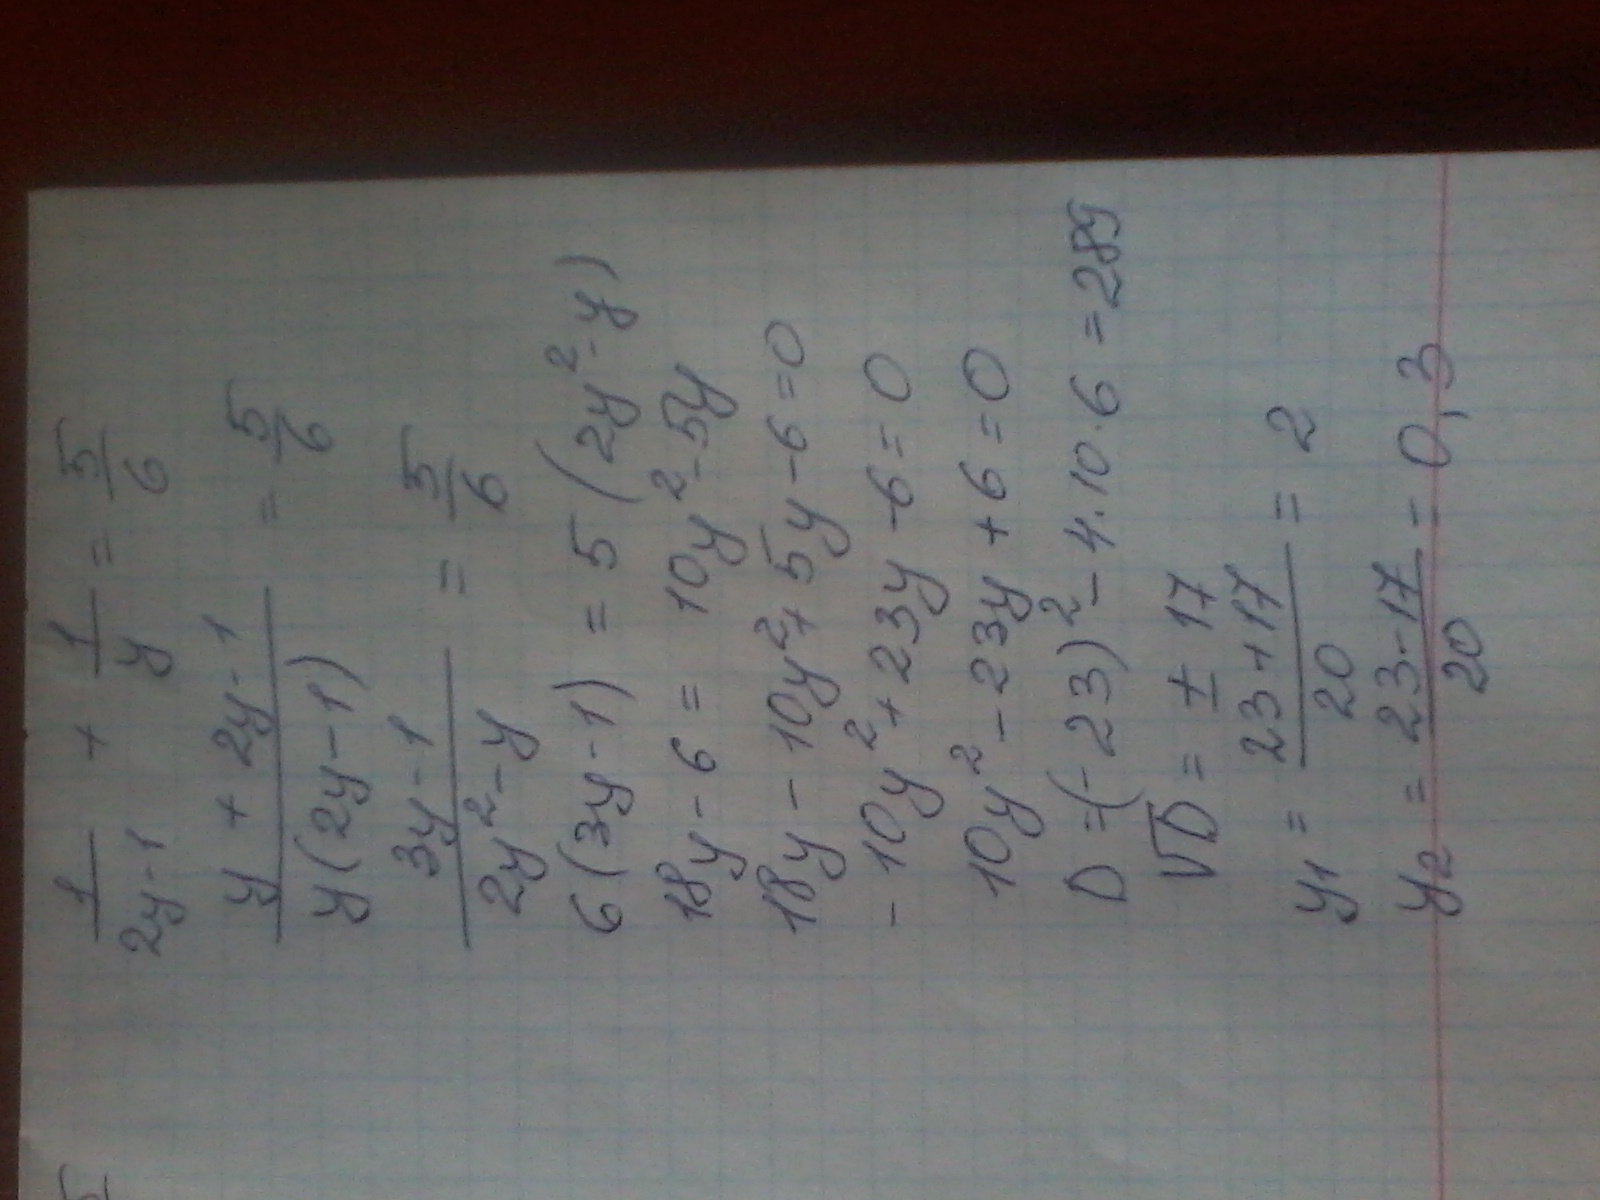 1/(2y-1) + 1/y = 5/6
(y + 2y-1)/(y(2y-1)) = 5/6
(3y-1)/(2y²-y) = 5/6
6(3y-1) = 5(2y²-y)
18y-6 = 10y²-5y
18y-10y²+5y-6=0
-10y²+23y-6=0
10y²-23y+6=0
D=(-23)²-4·10·6=289
√D = ± 17
y₁ = (23+17)/20 = 2
y₂ = (23-17)/20 - 0,3